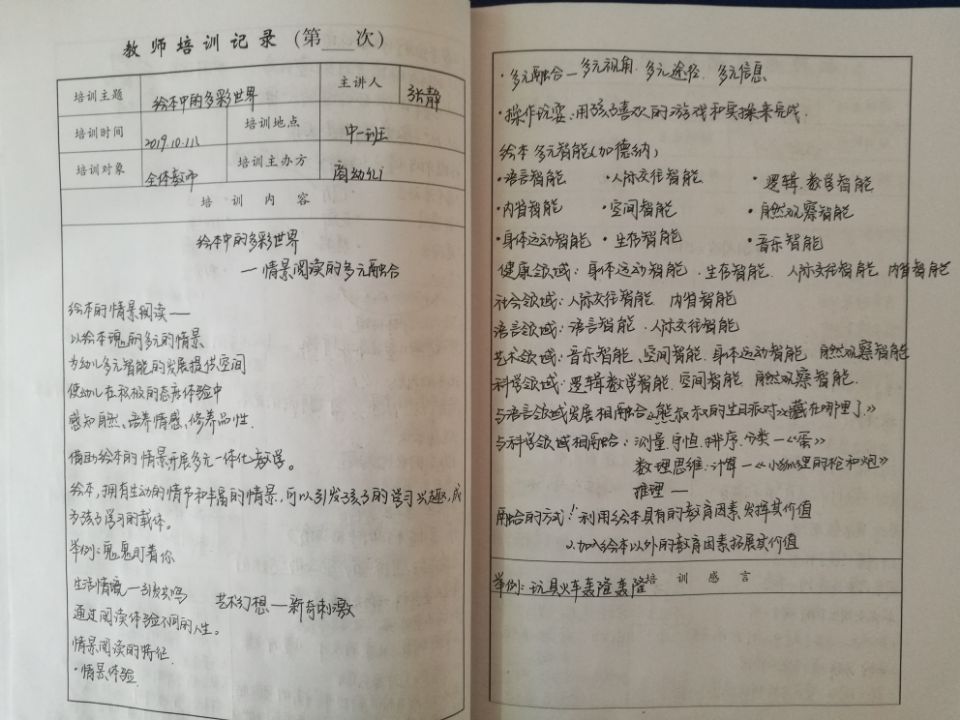 教师培训记录(第 次)
培训主题 绘本中的多彩世界 主讲人 张静
培训时间 2019.10.11 培训地点 中一班
培训对象 全体教师 培训主办方 幼儿
培训内容
绘本中的多彩世界
—情景阅读的多元融合
绘本的情景阅读——
以绘本 的多元的情景
为幼儿多元智能的发展提供空间
使幼儿在积极的态度体验中
感知自然、培养情感、修养品性.
借助绘本的情景开展多元一体化教学。
绘本,拥有生动的情节和丰富的情景,可以引发孩子的学习兴趣,成
为孩子学习的载体。
举例: 盯着你
生活情境—引发共鸣 艺术幻想—新奇刺激
通过阅读体验不同的人生。
情景阅读的特征.
·情景体验
·多元融合—多元视角.多元途径.多元信息
·操作 :用孩子喜欢的游戏和实操来完成.
绘本多元智能(加德纳)
·语言智能 ·人际交往智能 ·逻辑.数学智能
·内省智能 ·空间智能 ·自然观察智能
·身体运动智能 ·生存智能 ·音乐智能
健康领域:身体运动智能.生存智能.人际交往智能 内省智能
社会领域:人际交往智能 内省智能
语言领域:语言智能.人际交往智能
艺术领域:音乐智能、空间智能.身体运动智能 自然观察智能
科学领域:逻辑数学智能.空间智能 自然观察智能.
与语言领域发展相融合《熊叔叔的生日派对》《藏在哪里了》
与科学领域相融合:测量.守恒.排序.分类—《蛋》
数理思维.计算—《小狐狸的枪和炮》
推理—
融合的方式:1.利用绘本具有的教育因素发挥其价值
2.加入绘本以外的教育因素拓展其价值
培训感言
举例:玩具火车轰隆轰隆